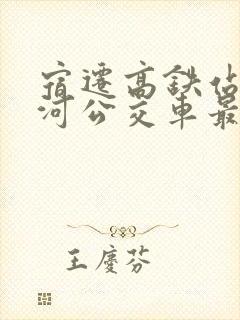 宿迁高铁站
河公交车最
王庆芬